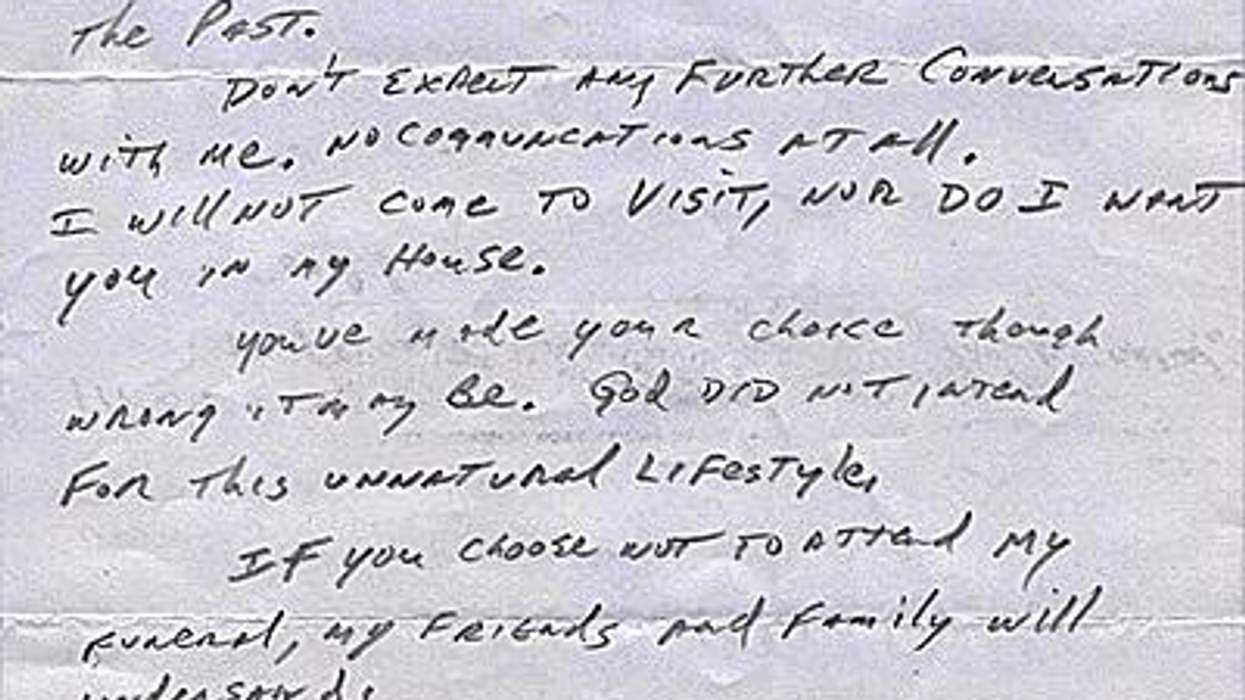 the Past.
Don't expect any Further Conversations
with me. No Communcations at all.
I will not come to Visit, nor do I want
you in my House.
you've made your choice though
wrong it may Be. God did not intend
For this unnatural Lifestyle.
If you choose not to attend my
Funeral, my Friends and Family will